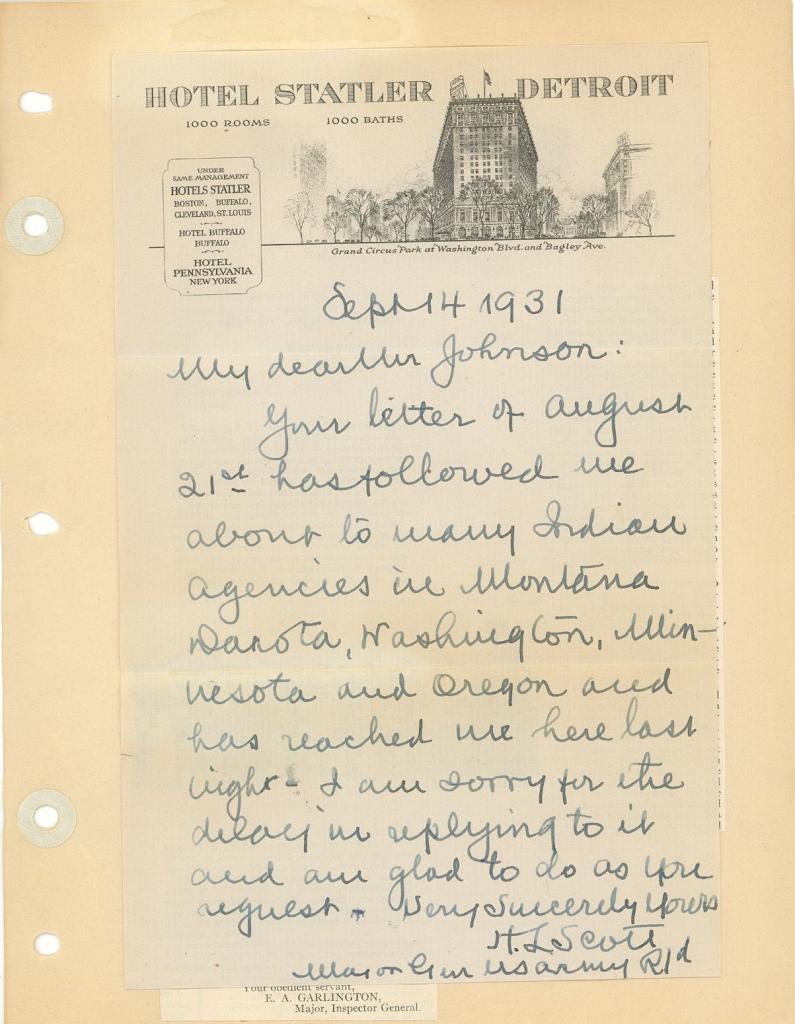 HOTEL STATLER DETROIT
1000 ROOMS 1000 BATHS
UNDER
SAME MANAGEMENT
HOTELS STATLER
BOSTON, BUFFALO,
CLEVELAND, ST. LOUIS
HOTEL BUFFALO
BUFFALO
HOTEL
PENNSYLVANIA
NEW YORK
Grand Circus Park at Washington Blvd. and Bagley Ave.
Sept 14 1931
My dear Mr Johnson:
Your letter of August
21st has followed me
about to many Indian
agencies in Montana
Dakota, Washington, Min-
nesota and Oregon and
has reached me here last
night - I am sorry for the
delay in replying to it
and am glad to do as you
request. Very Sincerely Yours
H. L. Scott
Major Gen US army R't'd
Your obedient servant,
E. A. GARLINGTON,
Major, Inspector General.